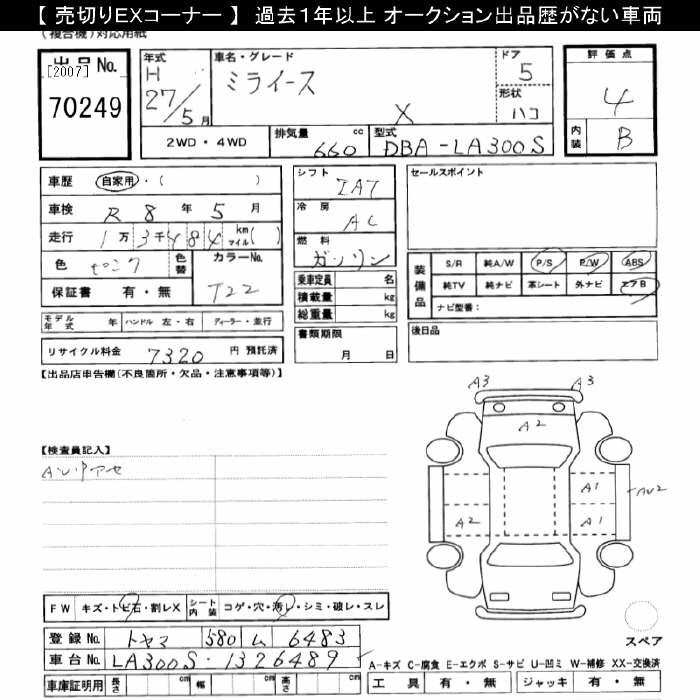 【 売切りEXコーナー 】 過去１年以上 オークション出品歴がない車両
(複合機)対応用紙
出品No.
[2007]
70249
年式
H
27/5月
車名・グレード
ミライース
X
ドア
5
形状
ハコ
評価点
4
内装
B
2WD・4WD
排気量 660 cc
型式 DBA-LA300S
車歴 自家用・( )
車検 R 8 年 5 月
走行 1万3千484 km マイル( )
色 ピンク
色替
カラーNo.
T22
保証書 有・無
モデル年式 年
ハンドル 左・右
ディーラー・並行
リサイクル料金 7320 円 預託済
シフト
IAT
冷房
AC
燃料
ガソリン
乗車定員 名
積載量 kg
総重量 kg
書類期限
月 日
セールスポイント
装備品
S/R 純A/W P/S P/W ABS
純TV 純ナビ 革シート 外ナビ エアB
ナビ型番:
後日品
【出品店申告欄(不良箇所・欠品・注意事項等)】
【検査員記入】
A3 A3
A2
A1
A2
A1
FW キズ・トビ石・割レX
シート内装 コゲ・穴・汚レ・シミ・破レ・スレ
登録No. トヤマ 580 ム 6483
車台No. LA300S-1326489
車庫証明用 長さ cm 幅 cm 高さ cm
スペア
A-キズ C-腐食 E-エクボ S-サビ U-凹ミ W-補修 XX-交換済
工具 有・無 ジャッキ 有・無